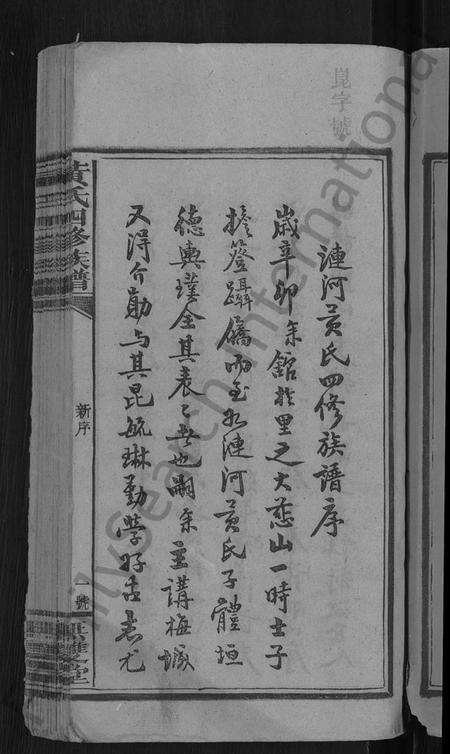 崑字號
漣河黃氏四修族譜序
歲辛卯余館於里之大慈山一時士子
擔簦躡屩而至如漣河黃氏子體垣
德輿瑾全其表表者也嗣余主講梅城
又得介勛与其昆毓琳勤學好古志尤
黃氏四修族譜
新序
一號
無雙堂
FamilySearch International